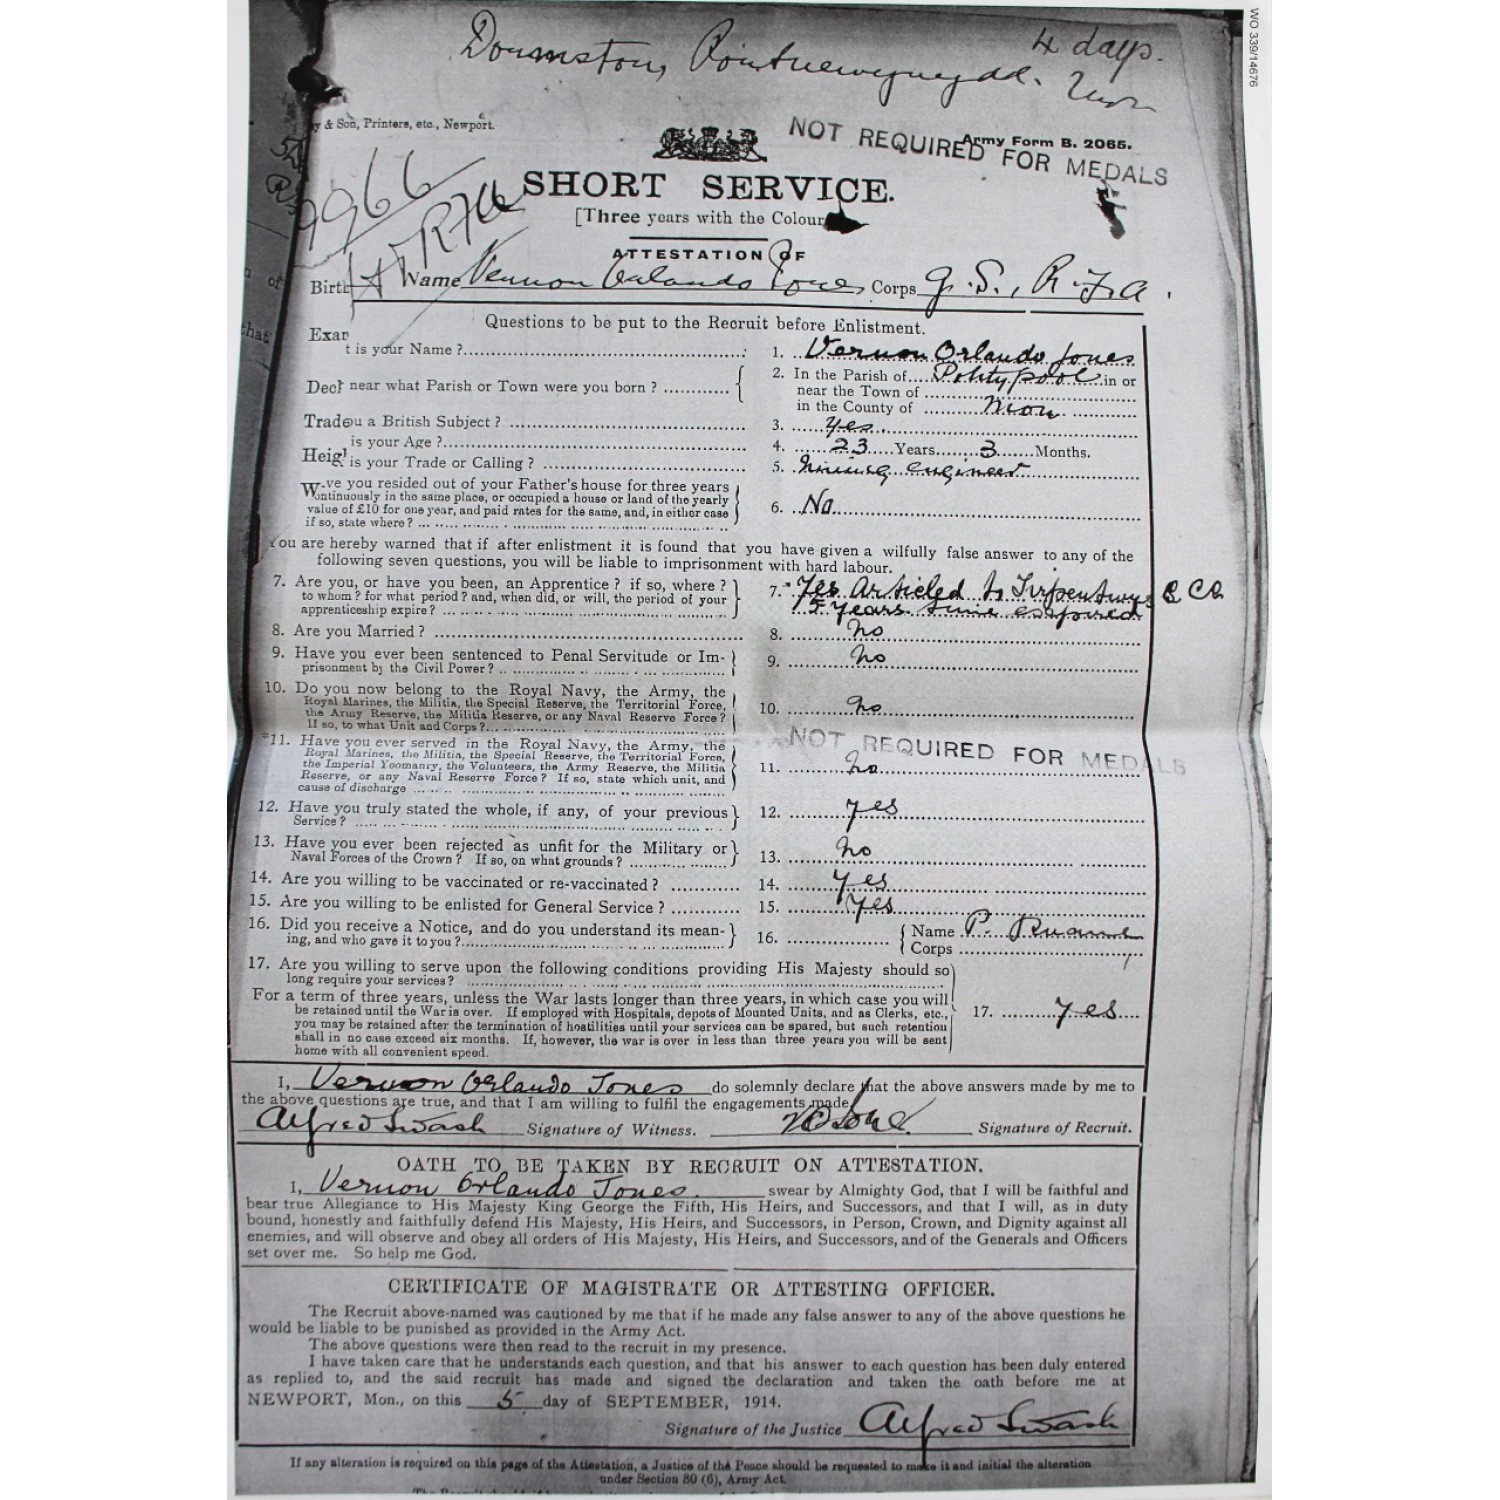 WO 339/14676
4 days.
y & Son, Printers, etc., Newport.
Army Form B. 2065.
NOT REQUIRED FOR MEDALS
9966
RFA
SHORT SERVICE.
[Three years with the Colour
ATTESTATION OF
Birth Name Vernon Orlando Jones, Corps G.S., R.F.A.
Questions to be put to the Recruit before Enlistment.
Exar
t is your Name ? 1. Vernon Orlando Jones
Decl near what Parish or Town were you born ? 2. In the Parish of Pontypool in or
near the Town of
in the County of Mon.
Tradeu a British Subject ? 3. Yes.
is your Age ? 4. 23 Years 3 Months.
Heigl is your Trade or Calling ? 5. Mining engineer
W-ve you resided out of your Father's house for three years
ontinuously in the same place, or occupied a house or land of the yearly
value of £10 for one year, and paid rates for the same, and, in either case
if so, state where ? 6. No.
You are hereby warned that if after enlistment it is found that you have given a wilfully false answer to any of the
following seven questions, you will be liable to imprisonment with hard labour.
7. Are you, or have you been, an Apprentice ? if so, where ? 7. Yes Articled to
to whom ? for what period ? and, when did, or will, the period of your
apprenticeship expire ? 5 years time expired
8. Are you Married ? 8. no
9. Have you ever been sentenced to Penal Servitude or Im-
prisonment by the Civil Power ? 9. no
10. Do you now belong to the Royal Navy, the Army, the
Royal Marines, the Militia, the Special Reserve, the Territorial Force,
the Army Reserve, the Militia Reserve, or any Naval Reserve Force ?
If so, to what Unit and Corps ? 10. no
NOT REQUIRED FOR MEDALS
*11. Have you ever served in the Royal Navy, the Army, the
Royal Marines, the Militia, the Special Reserve, the Territorial Force,
the Imperial Yeomanry, the Volunteers, the Army Reserve, the Militia
Reserve, or any Naval Reserve Force ? If so, state which unit, and
cause of discharge 11. no
12. Have you truly stated the whole, if any, of your previous
Service ? 12. yes
13. Have you ever been rejected as unfit for the Military or
Naval Forces of the Crown ? If so, on what grounds ? 13. no
14. Are you willing to be vaccinated or re-vaccinated ? 14. yes
15. Are you willing to be enlisted for General Service ? 15. yes
16. Did you receive a Notice, and do you understand its mean- 16. Name P.
ing, and who gave it to you ? Corps
17. Are you willing to serve upon the following conditions providing His Majesty should so
long require your services ?
For a term of three years, unless the War lasts longer than three years, in which case you will
be retained until the War is over. If employed with Hospitals, depots of Mounted Units, and as Clerks, etc., 17. yes
you may be retained after the termination of hostilities until your services can be spared, but such retention
shall in no case exceed six months. If, however, the war is over in less than three years you will be sent
home with all convenient speed.
I, Vernon Orlando Jones do solemnly declare that the above answers made by me to
the above questions are true, and that I am willing to fulfil the engagements made.
Alfred Swash Signature of Witness. VO Jones. Signature of Recruit.
OATH TO BE TAKEN BY RECRUIT ON ATTESTATION.
I, Vernon Orlando Jones. swear by Almighty God, that I will be faithful and
bear true Allegiance to His Majesty King George the Fifth, His Heirs, and Successors, and that I will, as in duty
bound, honestly and faithfully defend His Majesty, His Heirs, and Successors, in Person, Crown, and Dignity against all
enemies, and will observe and obey all orders of His Majesty, His Heirs, and Successors, and of the Generals and Officers
set over me. So help me God.
CERTIFICATE OF MAGISTRATE OR ATTESTING OFFICER.
The Recruit above-named was cautioned by me that if he made any false answer to any of the above questions he
would be liable to be punished as provided in the Army Act.
The above questions were then read to the recruit in my presence.
I have taken care that he understands each question, and that his answer to each question has been duly entered
as replied to, and the said recruit has made and signed the declaration and taken the oath before me at
NEWPORT, Mon., on this 5 day of SEPTEMBER, 1914.
Signature of the Justice Alfred Swash
If any alteration is required on this page of the Attestation, a Justice of the Peace should be requested to make it and initial the alteration
under Section 80 (6), Army Act.